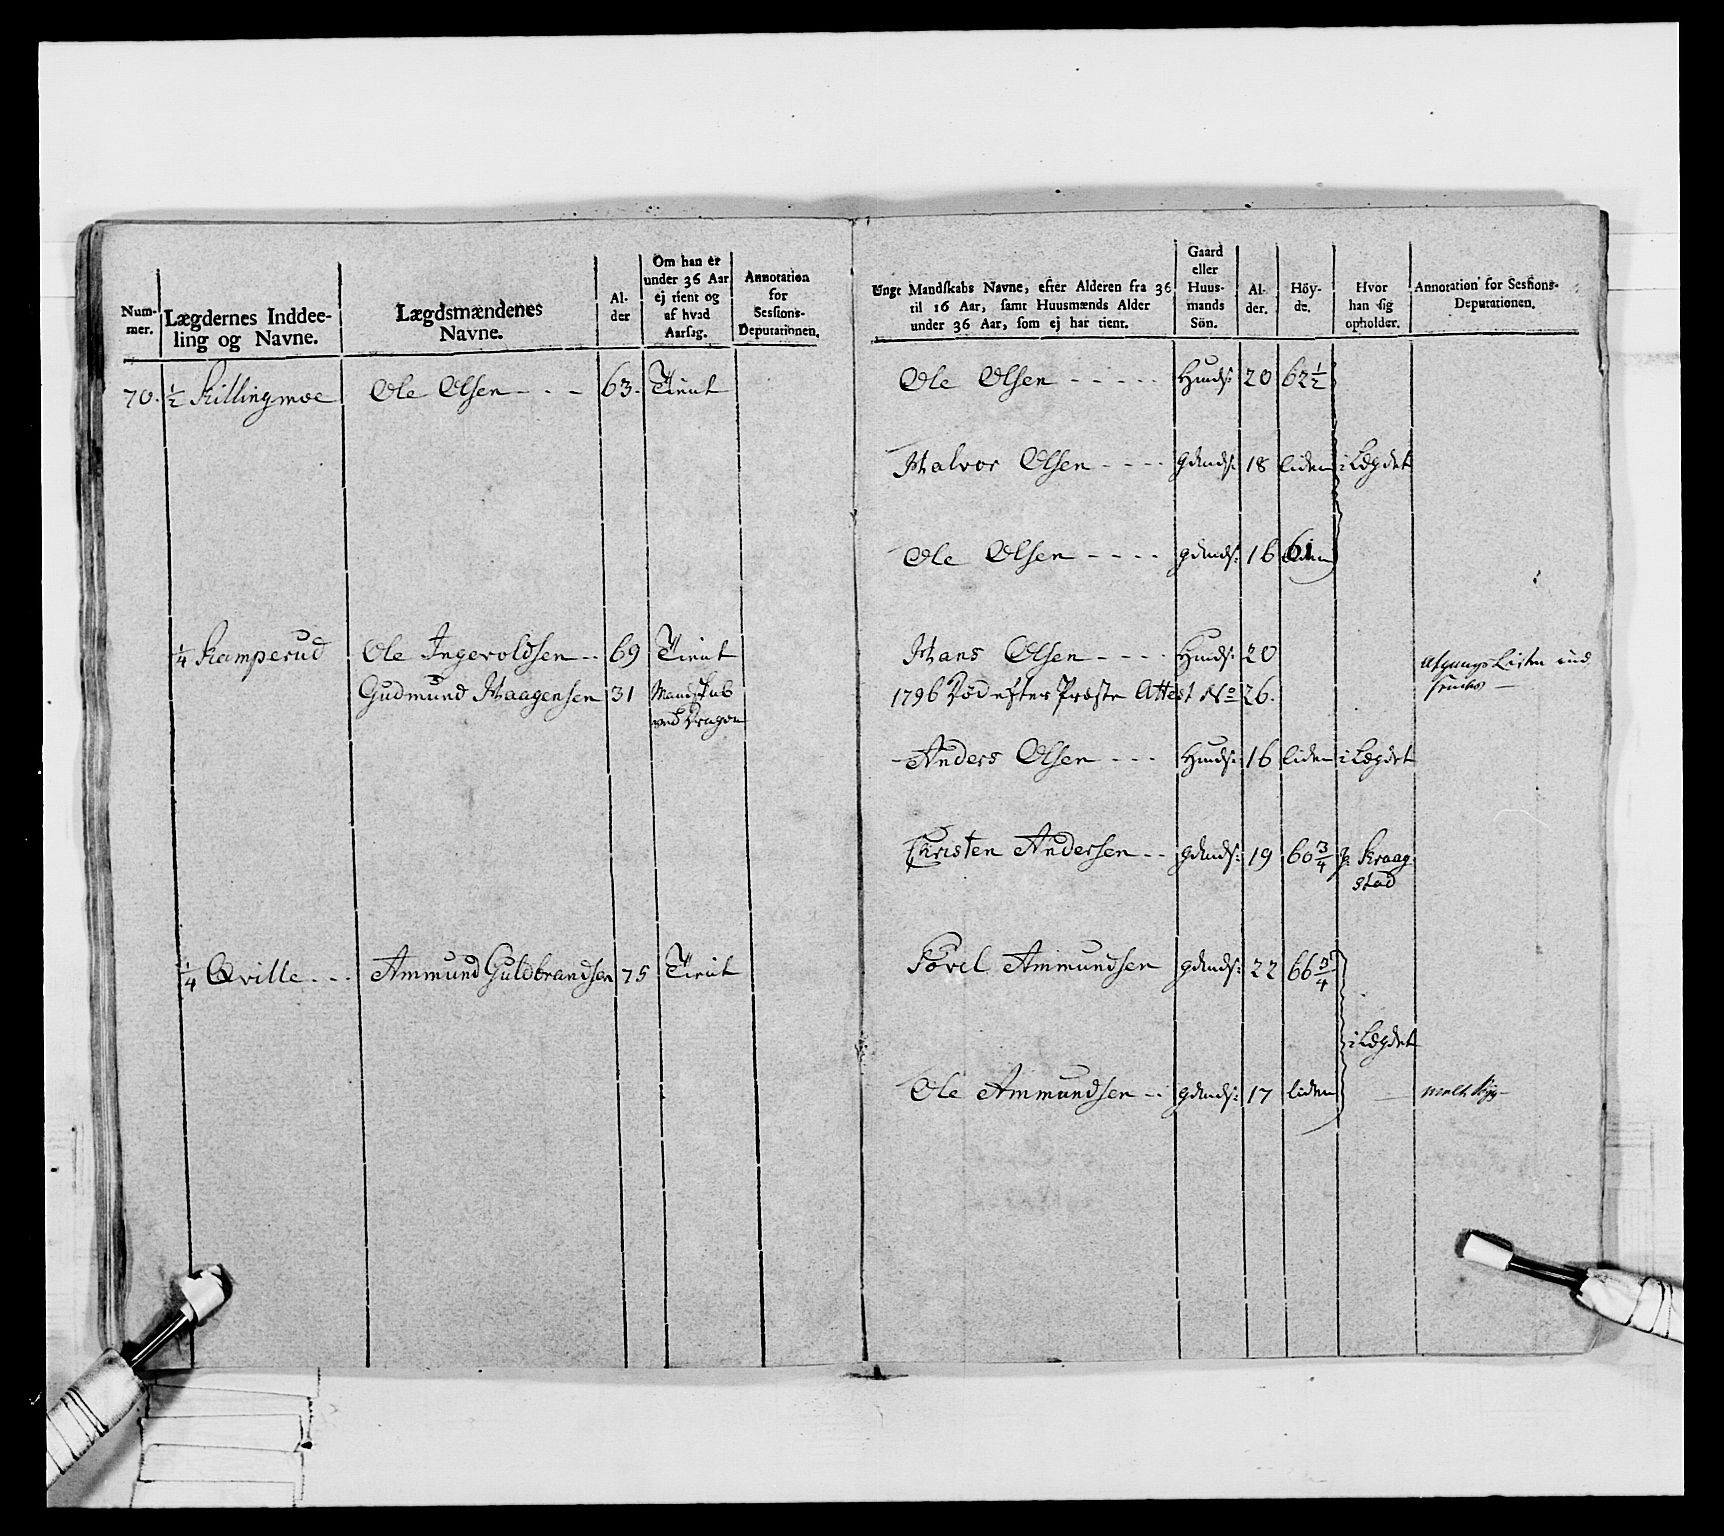 Nummer.
Lægdernes Inddeeling og Navne.
Lægdsmændenes Navne.
Alder
Om han er under 36 Aar ej tient og af hvad Aarsag.
Annotation for Sessions-Deputationen.
Ungt Mandskabs Navne, efter Alderen fra 36 til 16 Aar, samt Huusmænds Alder under 36 Aar, som ej har tient.
Gaard eller Huusmands Sön.
Alder.
Höyde.
Hvor han sig opholder.
Annotation for Sessions-Deputationen.
70. ½ Killingmoe Ole Olsen - - - 63. Tient
Ole Olsen - - - - - Hmds: 20 62½
Halvor Olsen - - - - gdmds: 18 liden i Lægdet
Ole Olsen - - - - gdmds: 16 61
¼ Kamperud Ole Ingevoldsen - - 69 Tient
Gudmund Haagensen 31 Mandskab
ved Dragon
Hans Olsen - - - - Hmds: 20
1796 Død efter Præste Attest No 26.
Afgangs Listen
Anders Olsen - - - Hmds: 16 liden i Lægdet
Christen Andersen - - gdmds: 19 60¾ p. Kraag
stad
¼ Qville - - - Ammund Guldbrandsen 75 Tient
Povel Ammundsen gdmds: 22 66¾
i Lægdet
Ole Ammundsen - - gdmds: 17 liden